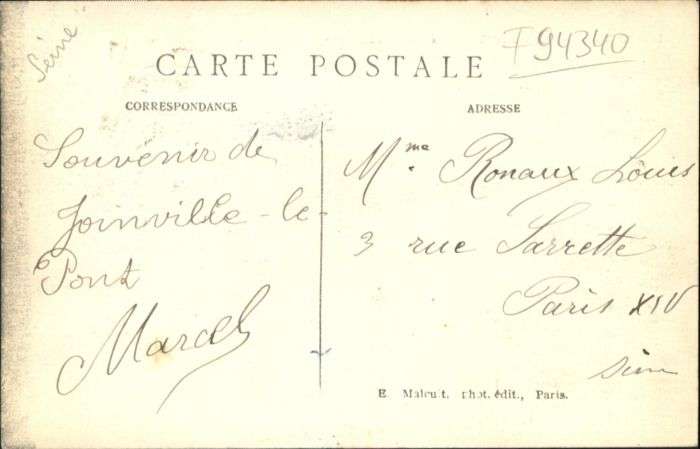 Seine
F94340
CARTE POSTALE
CORRESPONDANCE
ADRESSE
Souvenir de
Joinville-le-
Pont
Marcel
Mme Ronaux Louis
3 rue Sarrette
Paris XIV
Seine
E. Malcuit, phot. édit., Paris.